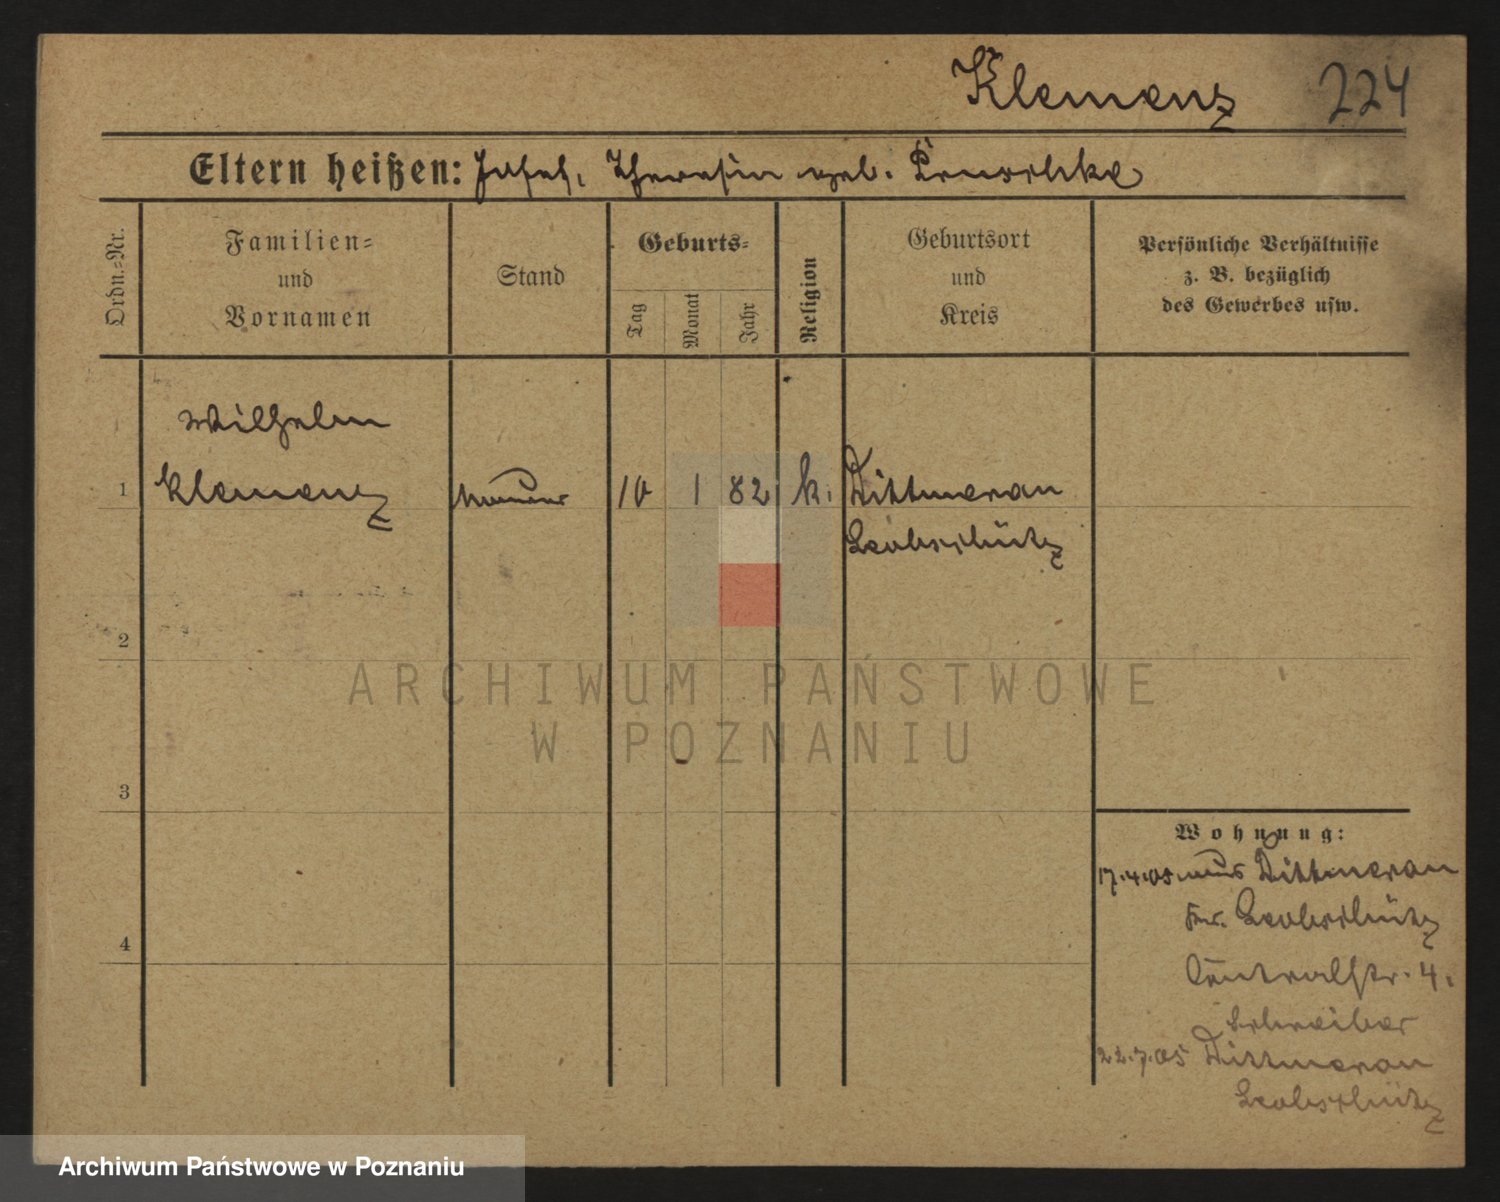 Klemenz 224
Eltern heißen: Josef, Theresia geb. Pruschke
Ordn.-Nr.
Familien-
und
Vornamen
Stand
Geburts-
Tag
Monat
Jahr
Religion
Geburtsort
und
Kreis
Persönliche Verhältnisse
z. B. bezüglich
des Gewerbes usw.
Wilhelm
1 Klemenz Maurer 10 1 82 k. Dittmerau
Leobschütz
2
ARCHIWUM PAŃSTWOWE
W POZNANIU
3
4
Wohnung:
17.4.05 aus Dittmerau
Kr. Leobschütz
Centralstr. 4.
Schreiber
22.7.05 Dittmerau
Leobschütz
Archiwum Państwowe w Poznaniu